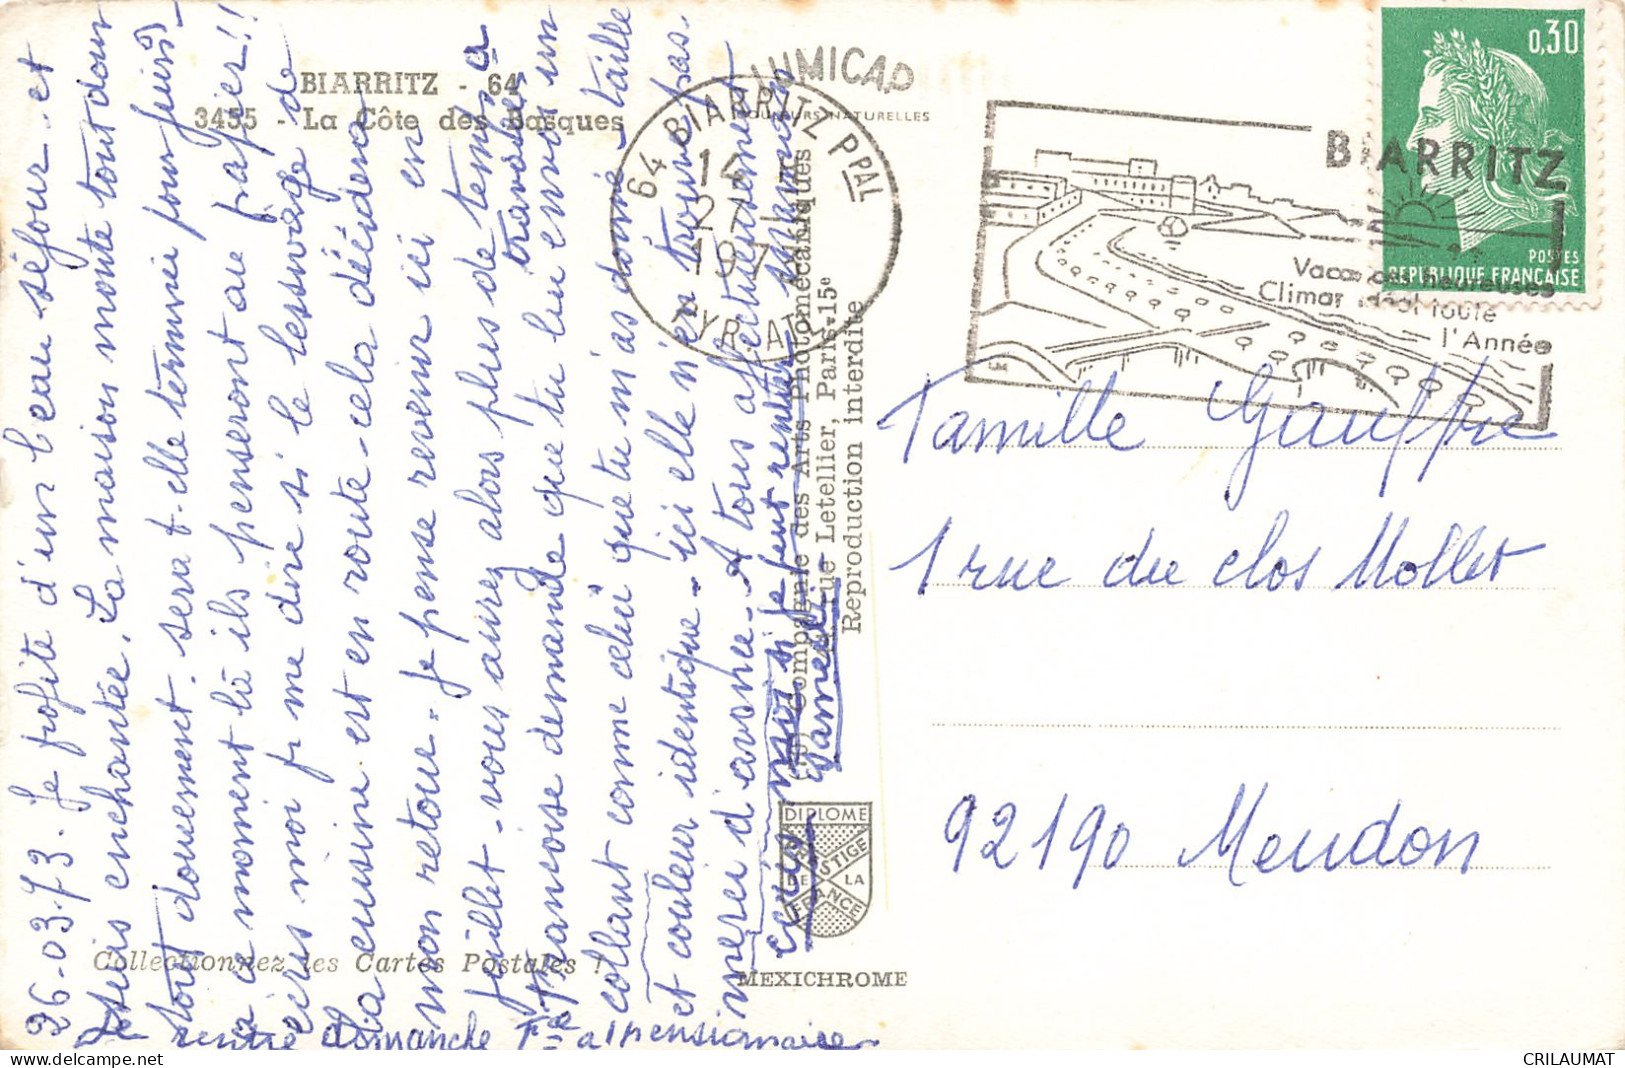 BIARRITZ - 64
3455 - La Côte des Basques
LUMICAP
COULEURS NATURELLES
64 BIARRITZ PPAL
BIARRITZ
Vacances heureuses
Climat idéal toute
l'Année
0,30
POSTES
REPUBLIQUE FRANÇAISE
26-03-73. Je profite d'un beau séjour et
suis enchantée. La maison monte tout doux
tout doucement. sera t-elle terminée pour juin
à ce moment là ils penseront au papier!!
écris moi p me dire si le lessivage de
la cuisine est en route - cela décidera
mon retour. Je pense revenir ici en
juillet - vous aurez alors plus de temps a
travailler
Françoise demande que tu lui envoies un
collant comme celui que tu m'as donné - taille
et couleur identique - ici elle n'en trouve pas.
merci d'avance. A tous affectueusement
écris moi si je peux rentrer
Je rentre dimanche
Compagnie des Arts Photomécaniques
rue Letellier, Paris-15e
Reproduction interdite
DIPLOME
PRESTIGE
DE LA
FRANCE
MEXICHROME
Collectionnez les Cartes Postales !
Famille Gauffre
1 rue du clos Mollet
92190 Meudon
CRILAUMAT